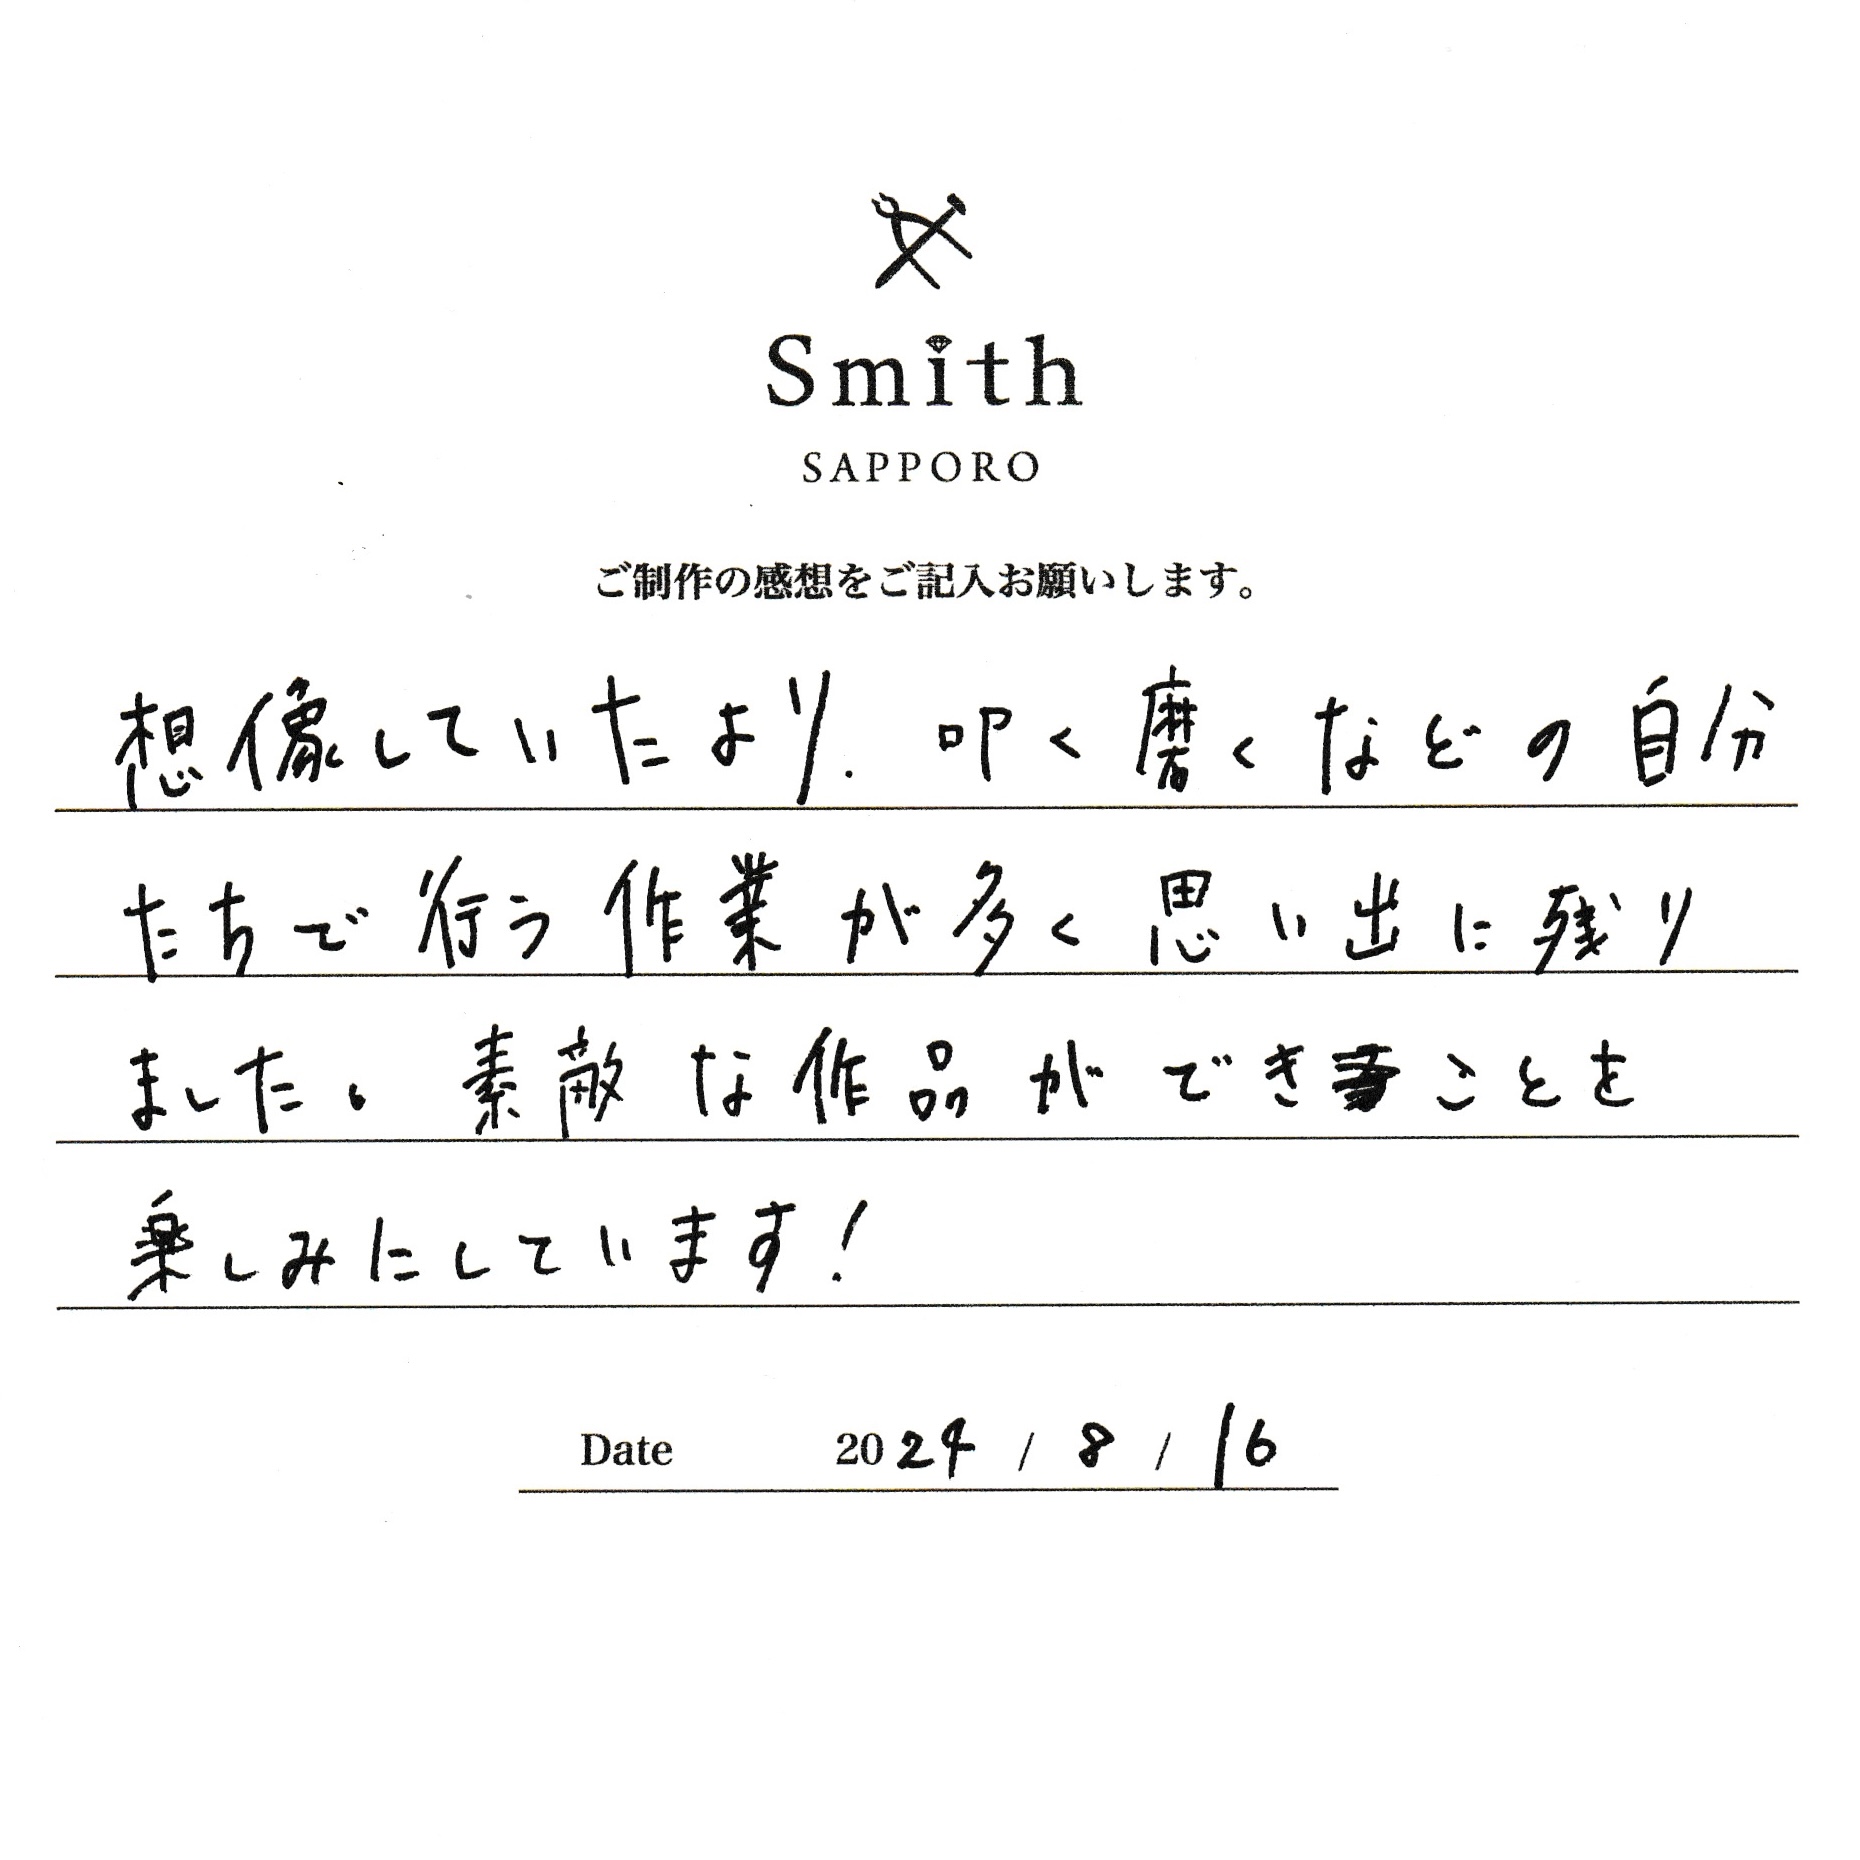 Smith
SAPPORO
ご制作の感想をご記入お願いします。
想像していたより、叩く磨くなどの自分
たちで行う作業が多く思い出に残り
ました。素敵な作品ができことを
楽しみにしています!
Date 2024 / 8 / 16